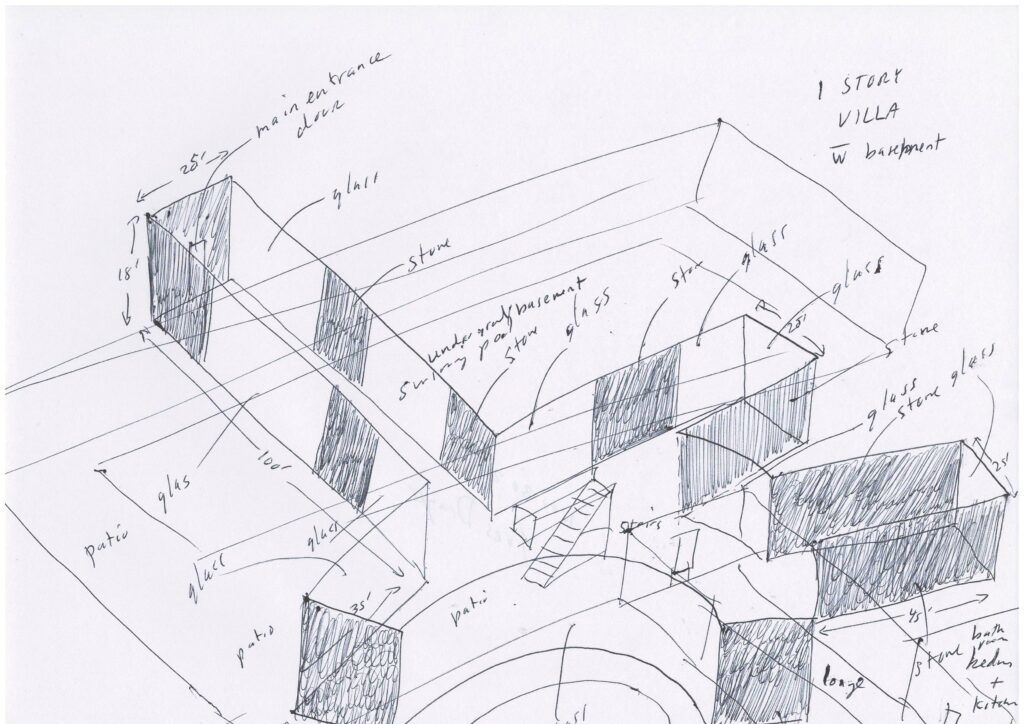 1 STORY
VILLA
W basement
main entrance
door
25'
glass
18'
stone
underground basement
stone
glass
ston
glass
glass
25'
stone
glass
glass
stone
25'
100'
glas
patio
glass
glass
35'
patio
patio
stairs
45'
stone
bath
room
+